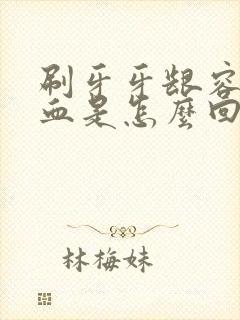 刷牙牙龈容
血是怎麼回
林梅妹